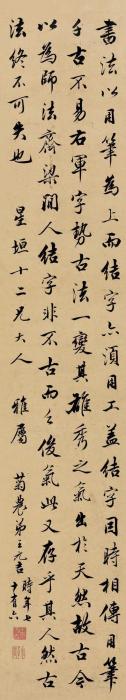 書法以用筆為上而結字亦須用工蓋結字因時相傳用筆
千古不易右軍字勢古法一變其雄秀之氣出於天然故古今
以為師法齊梁間人結字非不古而乏俊氣此又存乎其人然古
法終不可失也
星垣十二兄大人 雅屬
菊農弟元吉
時年七
十有六